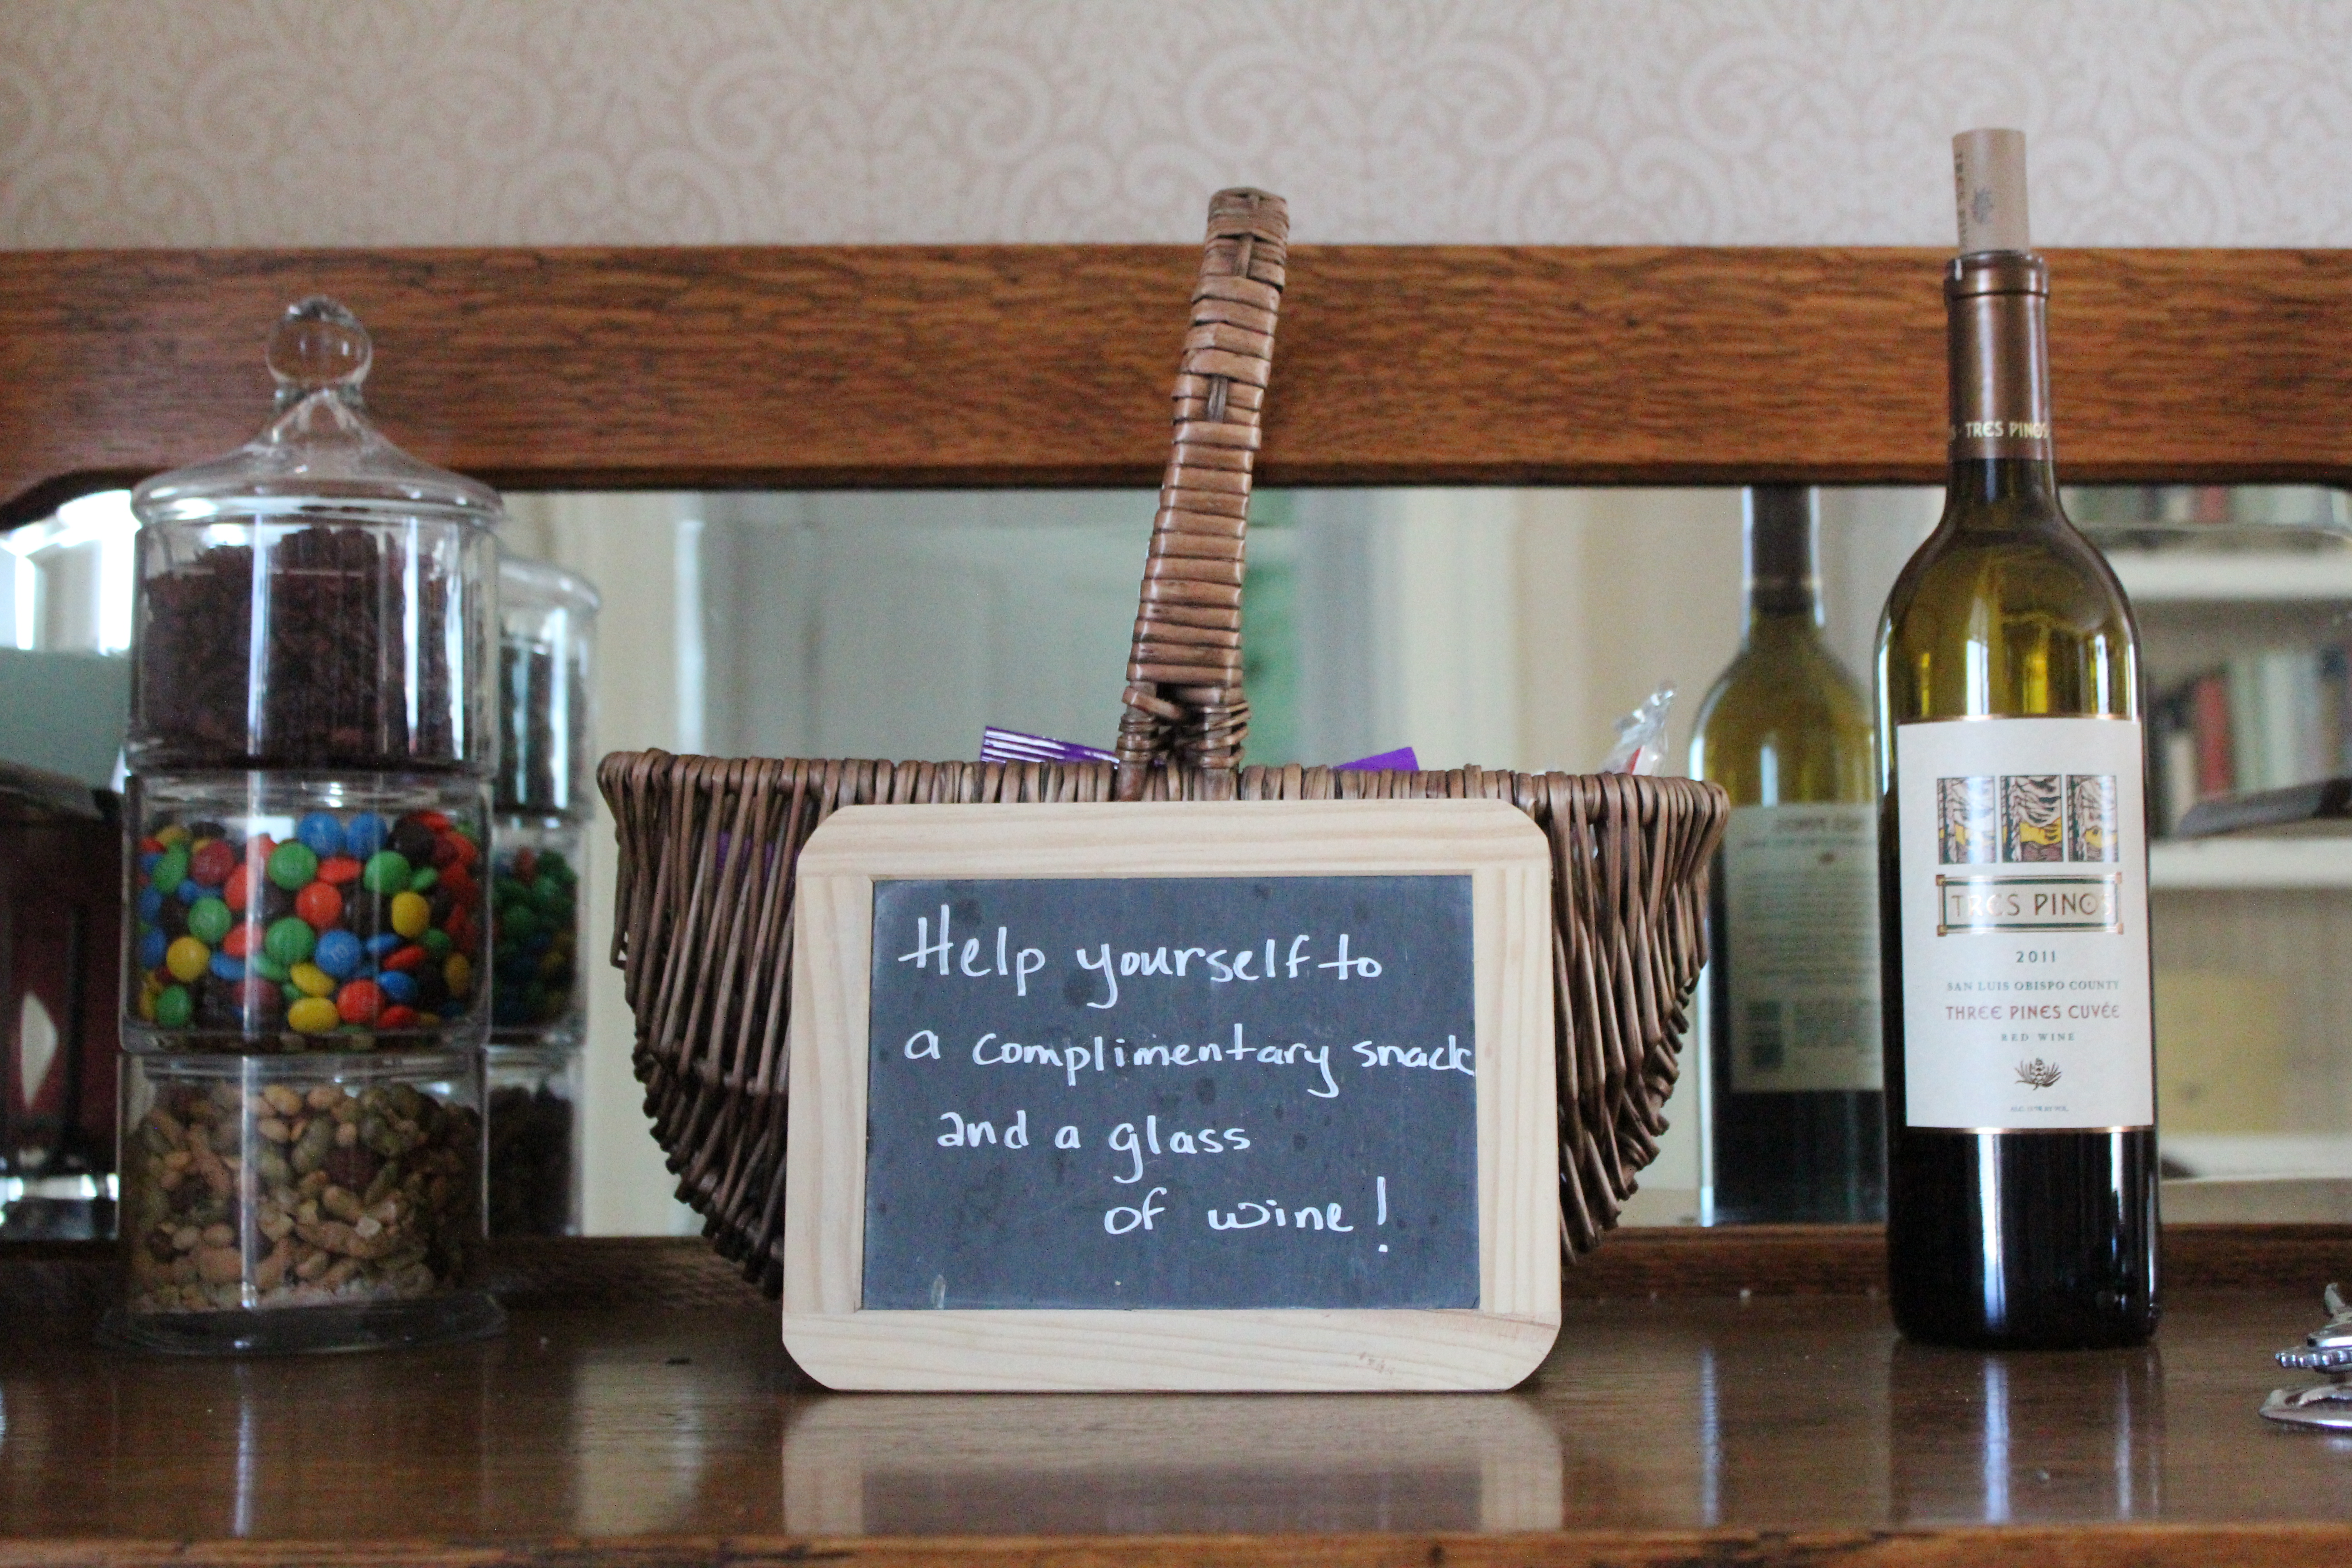 Help yourself to
a complimentary snack
and a glass
of wine!
TRES PINOS
TRES PINOS
2011
SAN LUIS OBISPO COUNTY
THREE PINES CUVÉE
RED WINE